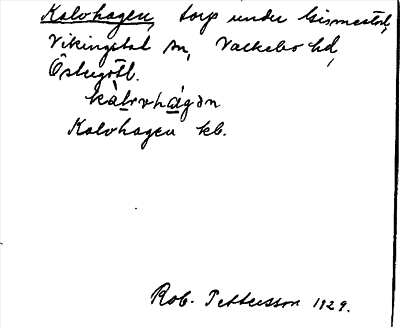 Kalvhagen, torp under Gismestad,
Vikingstad sn, Valkebo hd,
Östergötl.
kàlvhágən
Kalvhagen kb.
Rob. Pettersson 1929.